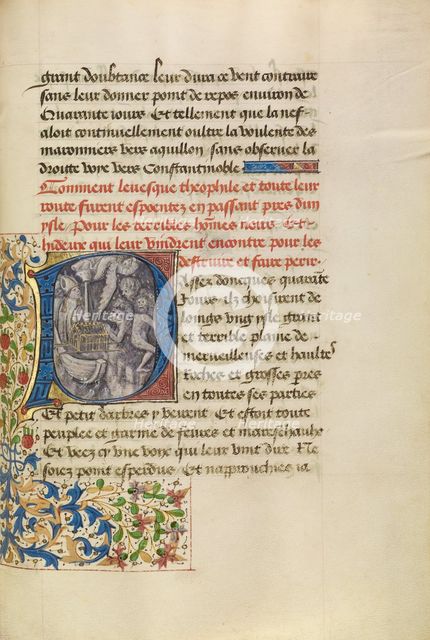 grant doubtance leur dura ce vent contraire
sans leur donner point de repos environ de
Quarante iours Et tellement que la nef
aloit continuellement oultre la voulente des
maronniers vers aquillon sans observer la
droite voye vers Constantinoble
Comment levesque theophile et toute leur
route furent espoentez en passant pres dun
ysle Pour les terribles hommes noirs Et
hideux qui leur vindrent encontre pour les
destruire et faire perir
Passez doncques quarante
Jours ilz choisirent de
loings ung ysle grant
et terrible plaine de
merveilleuses et haultes
roches et grosses pres
en toutes ses parties
Et petit darbres y veirent Et estoit toute
peuplee et garnie de feures et mareschaulx
Et Veez cy une voye qui leur vint dire Ne
soiez point esperdus Et napprouchies ia
Heritage Images
Heritage
Heritage
Heritage